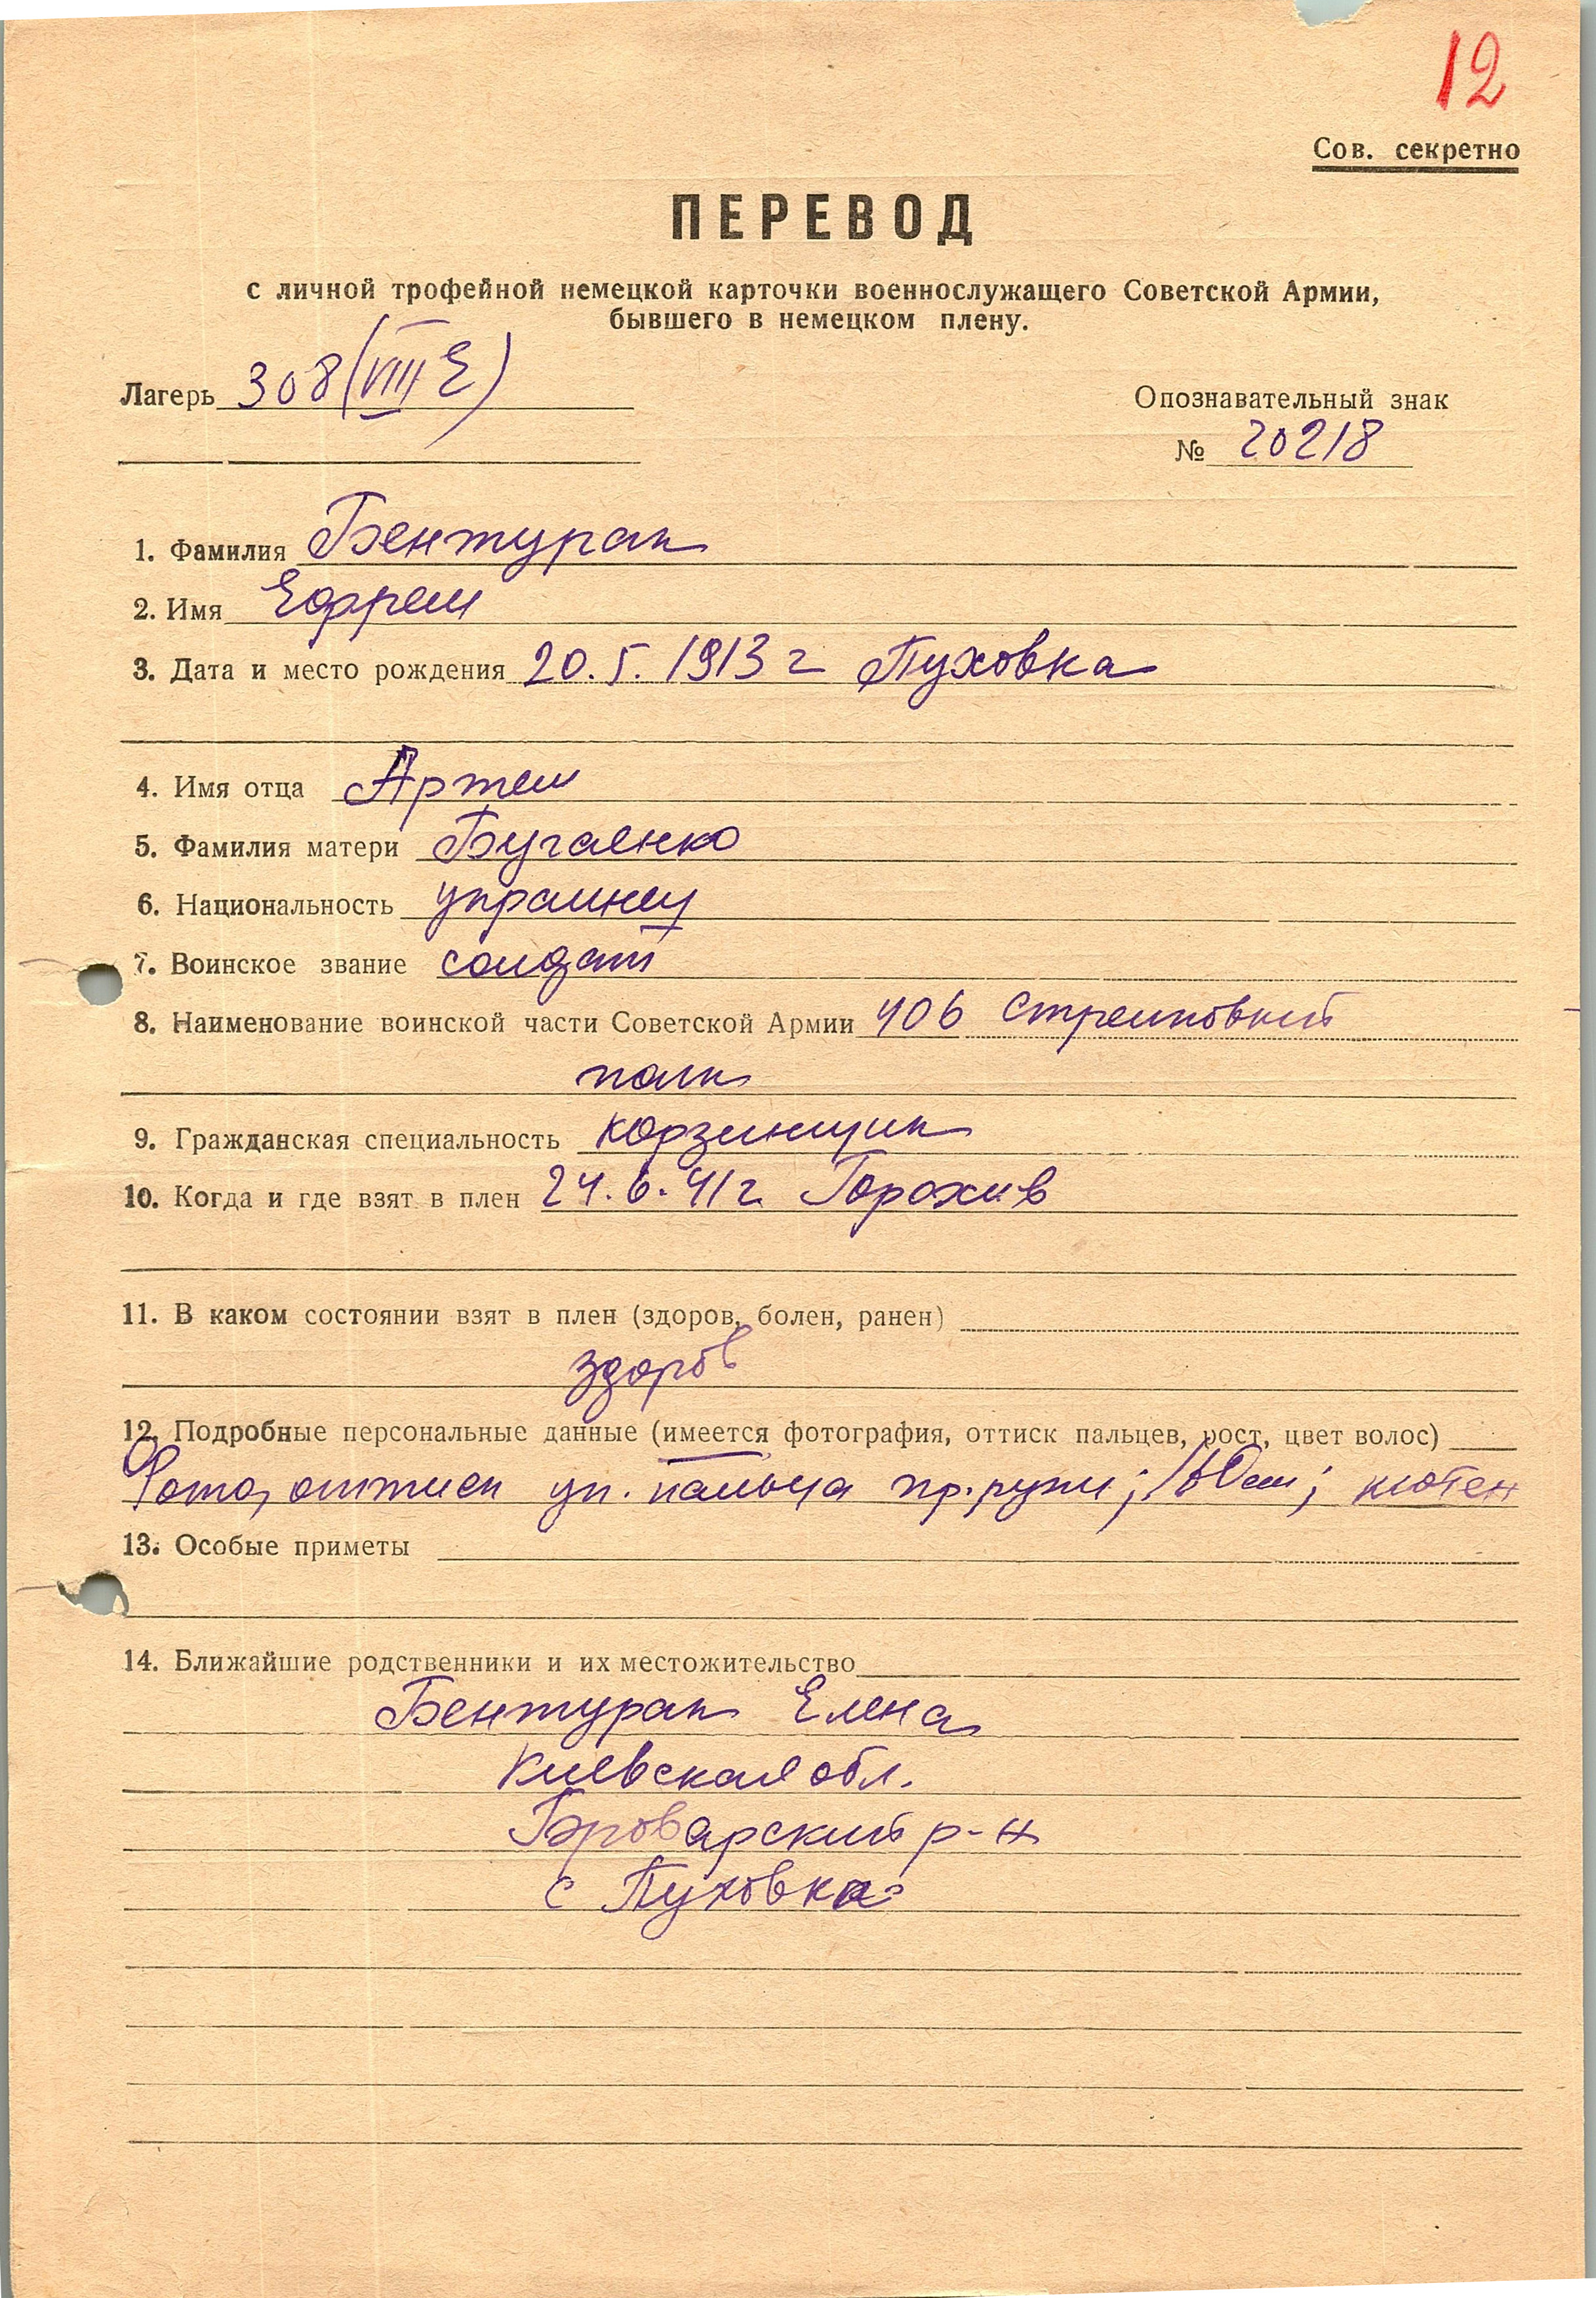 12
Сов. секретно
ПЕРЕВОД
с личной трофейной немецкой карточки военнослужащего Советской Армии,
бывшего в немецком плену.
Лагерь 308 (VIII E)
Опознавательный знак
№ 20218
1. Фамилия Бентурак
2. Имя Ефрем
3. Дата и место рождения 20.5.1913 г Пуховка
4. Имя отца Артем
5. Фамилия матери Бугаенко
6. Национальность украинец
7. Воинское звание солдат
8. Наименование воинской части Советской Армии 406 стрелковый
полк
9. Гражданская специальность корзинщик
10. Когда и где взят в плен 24.6.41 г. Горохив
11. В каком состоянии взят в плен (здоров, болен, ранен)
здоров
12. Подробные персональные данные (имеется фотография, оттиск пальцев, рост, цвет волос)
Фото, оттиск ук. пальца пр. руки; 160 см;
13. Особые приметы
14. Ближайшие родственники и их местожительство
Бентурак Елена
Киевская обл.
Броварский р-н
с Пуховка